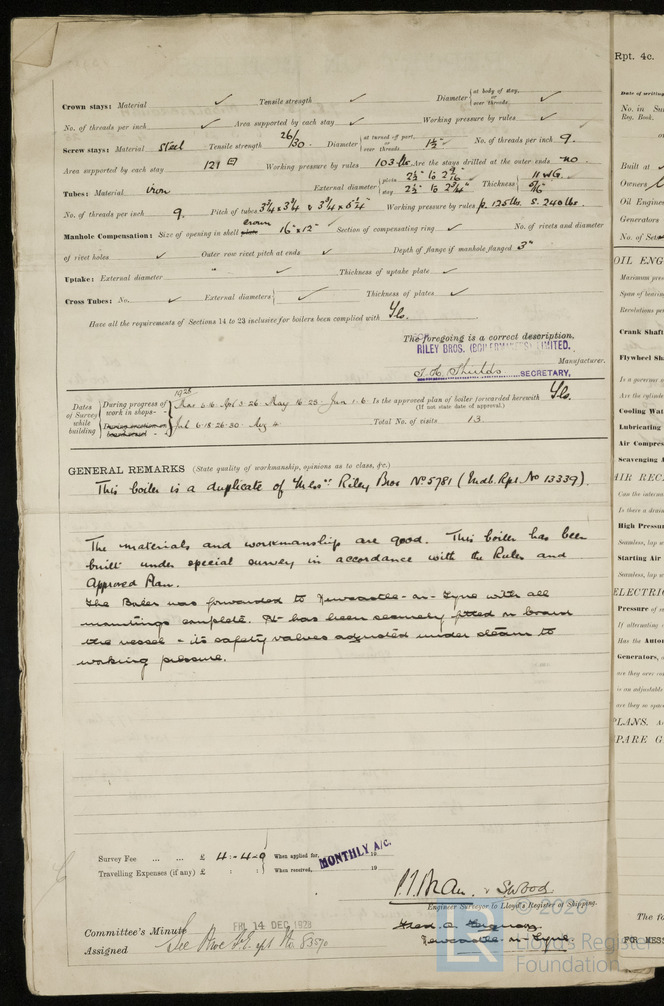 Crown stays: Material ✓ Tensile strength ✓ Diameter { at body of stay, or over threads ✓
No. of threads per inch ✓ Area supported by each stay ✓ Working pressure by rules ✓
Screw stays: Material steel Tensile strength 26/30 Diameter { at turned off part, or over threads 1½" No. of threads per inch 9.
Area supported by each stay 121 Working pressure by rules 103 lbs Are the stays drilled at the outer ends no
Tubes: Material Iron External diameter { plain 2½" to stay 2½" to 2¾" Thickness { 11 WG. 5/16"
No. of threads per inch 9. Pitch of tubes 3¾ x 3¾ & 3¾ x 5¼" Working pressure by rules p. 125 lbs. s. 240 lbs.
Manhole Compensation: Size of opening in shell crown 16" x 12" Section of compensating ring ✓ No. of rivets and diameter
of rivet holes ✓ Outer row rivet pitch at ends ✓ Depth of flange if manhole flanged 3"
Uptake: External diameter ✓ Thickness of uptake plate ✓
Cross Tubes: No. ✓ External diameters { ✓ Thickness of plates ✓
Have all the requirements of Sections 14 to 23 inclusive for boilers been complied with Yes.
The foregoing is a correct description.
RILEY BROS. (BOILERMAKERS) LIMITED.
Manufacturer.
SECRETARY,
Dates of Survey while building
During progress of work in shops - - 1928 Mar 5.16 Apl 3.26 May 16.23 Jun 1.6
Jul 6.18.26.30 Aug 4
Is the approved plan of boiler forwarded herewith Yes.
(If not state date of approval.)
Total No. of visits 13.
GENERAL REMARKS (State quality of workmanship, opinions as to class, &c.)
This boiler is a duplicate of Messrs Riley Bros No 5781 (Mdb. Rpt. No 13339).
The materials and workmanship are good. This boiler has been
built under special survey in accordance with the Rules and
Approved Plan.
The Boiler was forwarded to Newcastle-on-Tyne with all
mountings complete. It has been securely fitted on board
the vessel & its safety valves adjusted under steam to
working pressure.
Survey Fee ... ... £ 4 : 4 : 0 When applied for, 19
MONTHLY A/C.
Travelling Expenses (if any) £ : : When received, 19
Engineer Surveyor to Lloyd's Register of Shipping.
Newcastle-on-Tyne
Committee's Minute FRI 14 DEC 1928
Assigned See
© 2020
LR
Lloyd's Register
Foundation
Rpt. 4c.
Date of writing
No. in Su
Reg. Book.
Built at
Owners
Oil Engine
Generators
No. of Sets
OIL ENG
Maximum pres
Span of bearin
Revolutions pe
Crank Shaft
Flywheel Sha
Is a governor
Are the cylinde
Cooling Wat
Lubricating
Air Compres
Scavenging A
AIR REC
Can the interna
Is there a drain
High Pressure
Seamless, lap w
Starting Air
Seamless, lap w
ELECTRIC
Pressure of
If alternating
Has the Autom
Generators,
are they over co
is an adjustable
are they so spac
PLANS.
SPARE G
The fo
FOR MESS